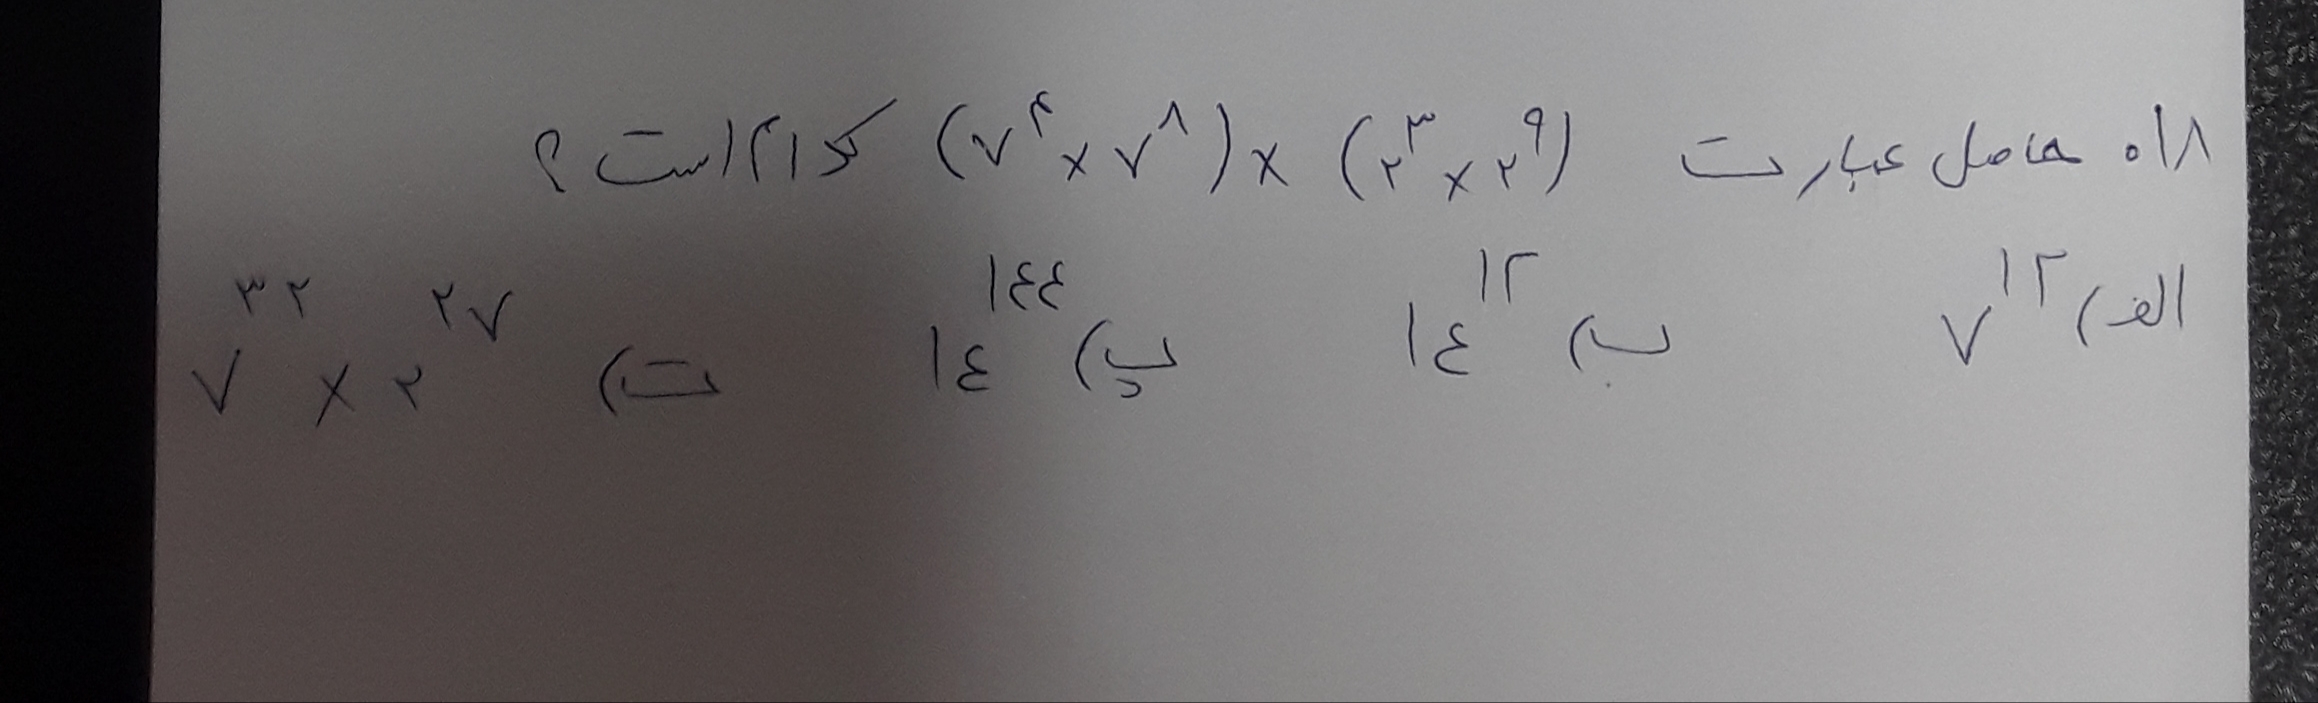 ۱۸۰ حاصل عبارت (۷^۴ × ۷^۸) × (۲^۳ × ۲^۹) کدام است؟
الف) ۷^۱۲ ب) ۱۴^۱۲ پ) ۱۴^۱۴۴ ت) ۷^۳۲ × ۲^۲۷